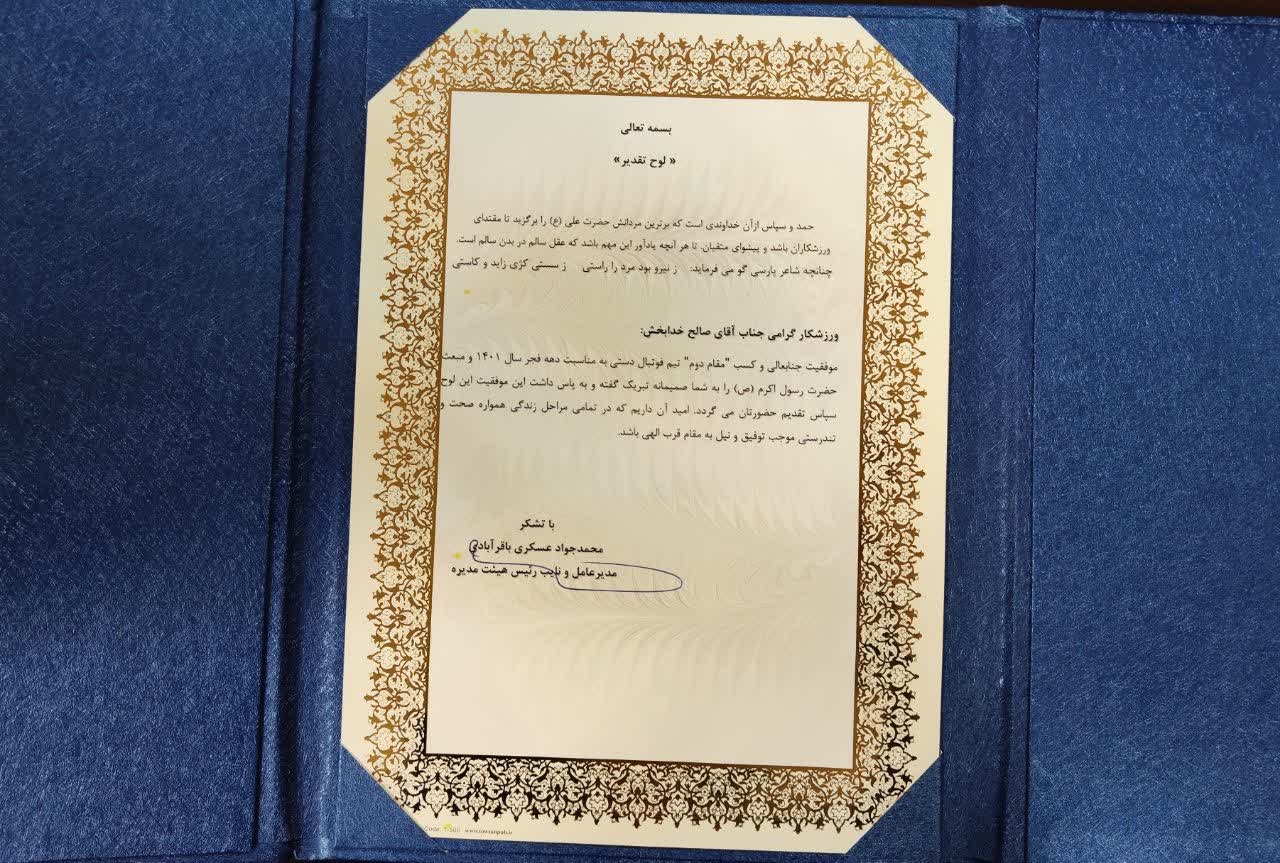 بسمه تعالی
« لوح تقدیر»
حمد و سپاس ازآن خداوندی است که برترین مردانش حضرت علی (ع) را برگزید تا مقتدای
ورزشکاران باشد و پیشوای متقیان. تا هر آنچه یادآور این مهم باشد که عقل سالم در بدن سالم است.
چنانچه شاعر پارسی گو می فرماید: ز نیرو بود مرد را راستی ز سستی کژی زاید و کاستی
ورزشکار گرامی جناب آقای صالح خدابخش:
موفقیت جنابعالی و کسب "مقام دوم" تیم فوتبال دستی به مناسبت دهه فجر سال ۱۴۰۱ و مبعث
حضرت رسول اکرم (ص) را به شما صمیمانه تبریک گفته و به پاس داشت این موفقیت این لوح
سپاس تقدیم حضورتان می گردد. امید آن داریم که در تمامی مراحل زندگی همواره صحت و
تندرستی موجب توفیق و نیل به مقام قرب الهی باشد.
با تشکر
محمدجواد عسکری باقرآبادی
مدیرعامل و نایب رئیس هیئت مدیره
Code: